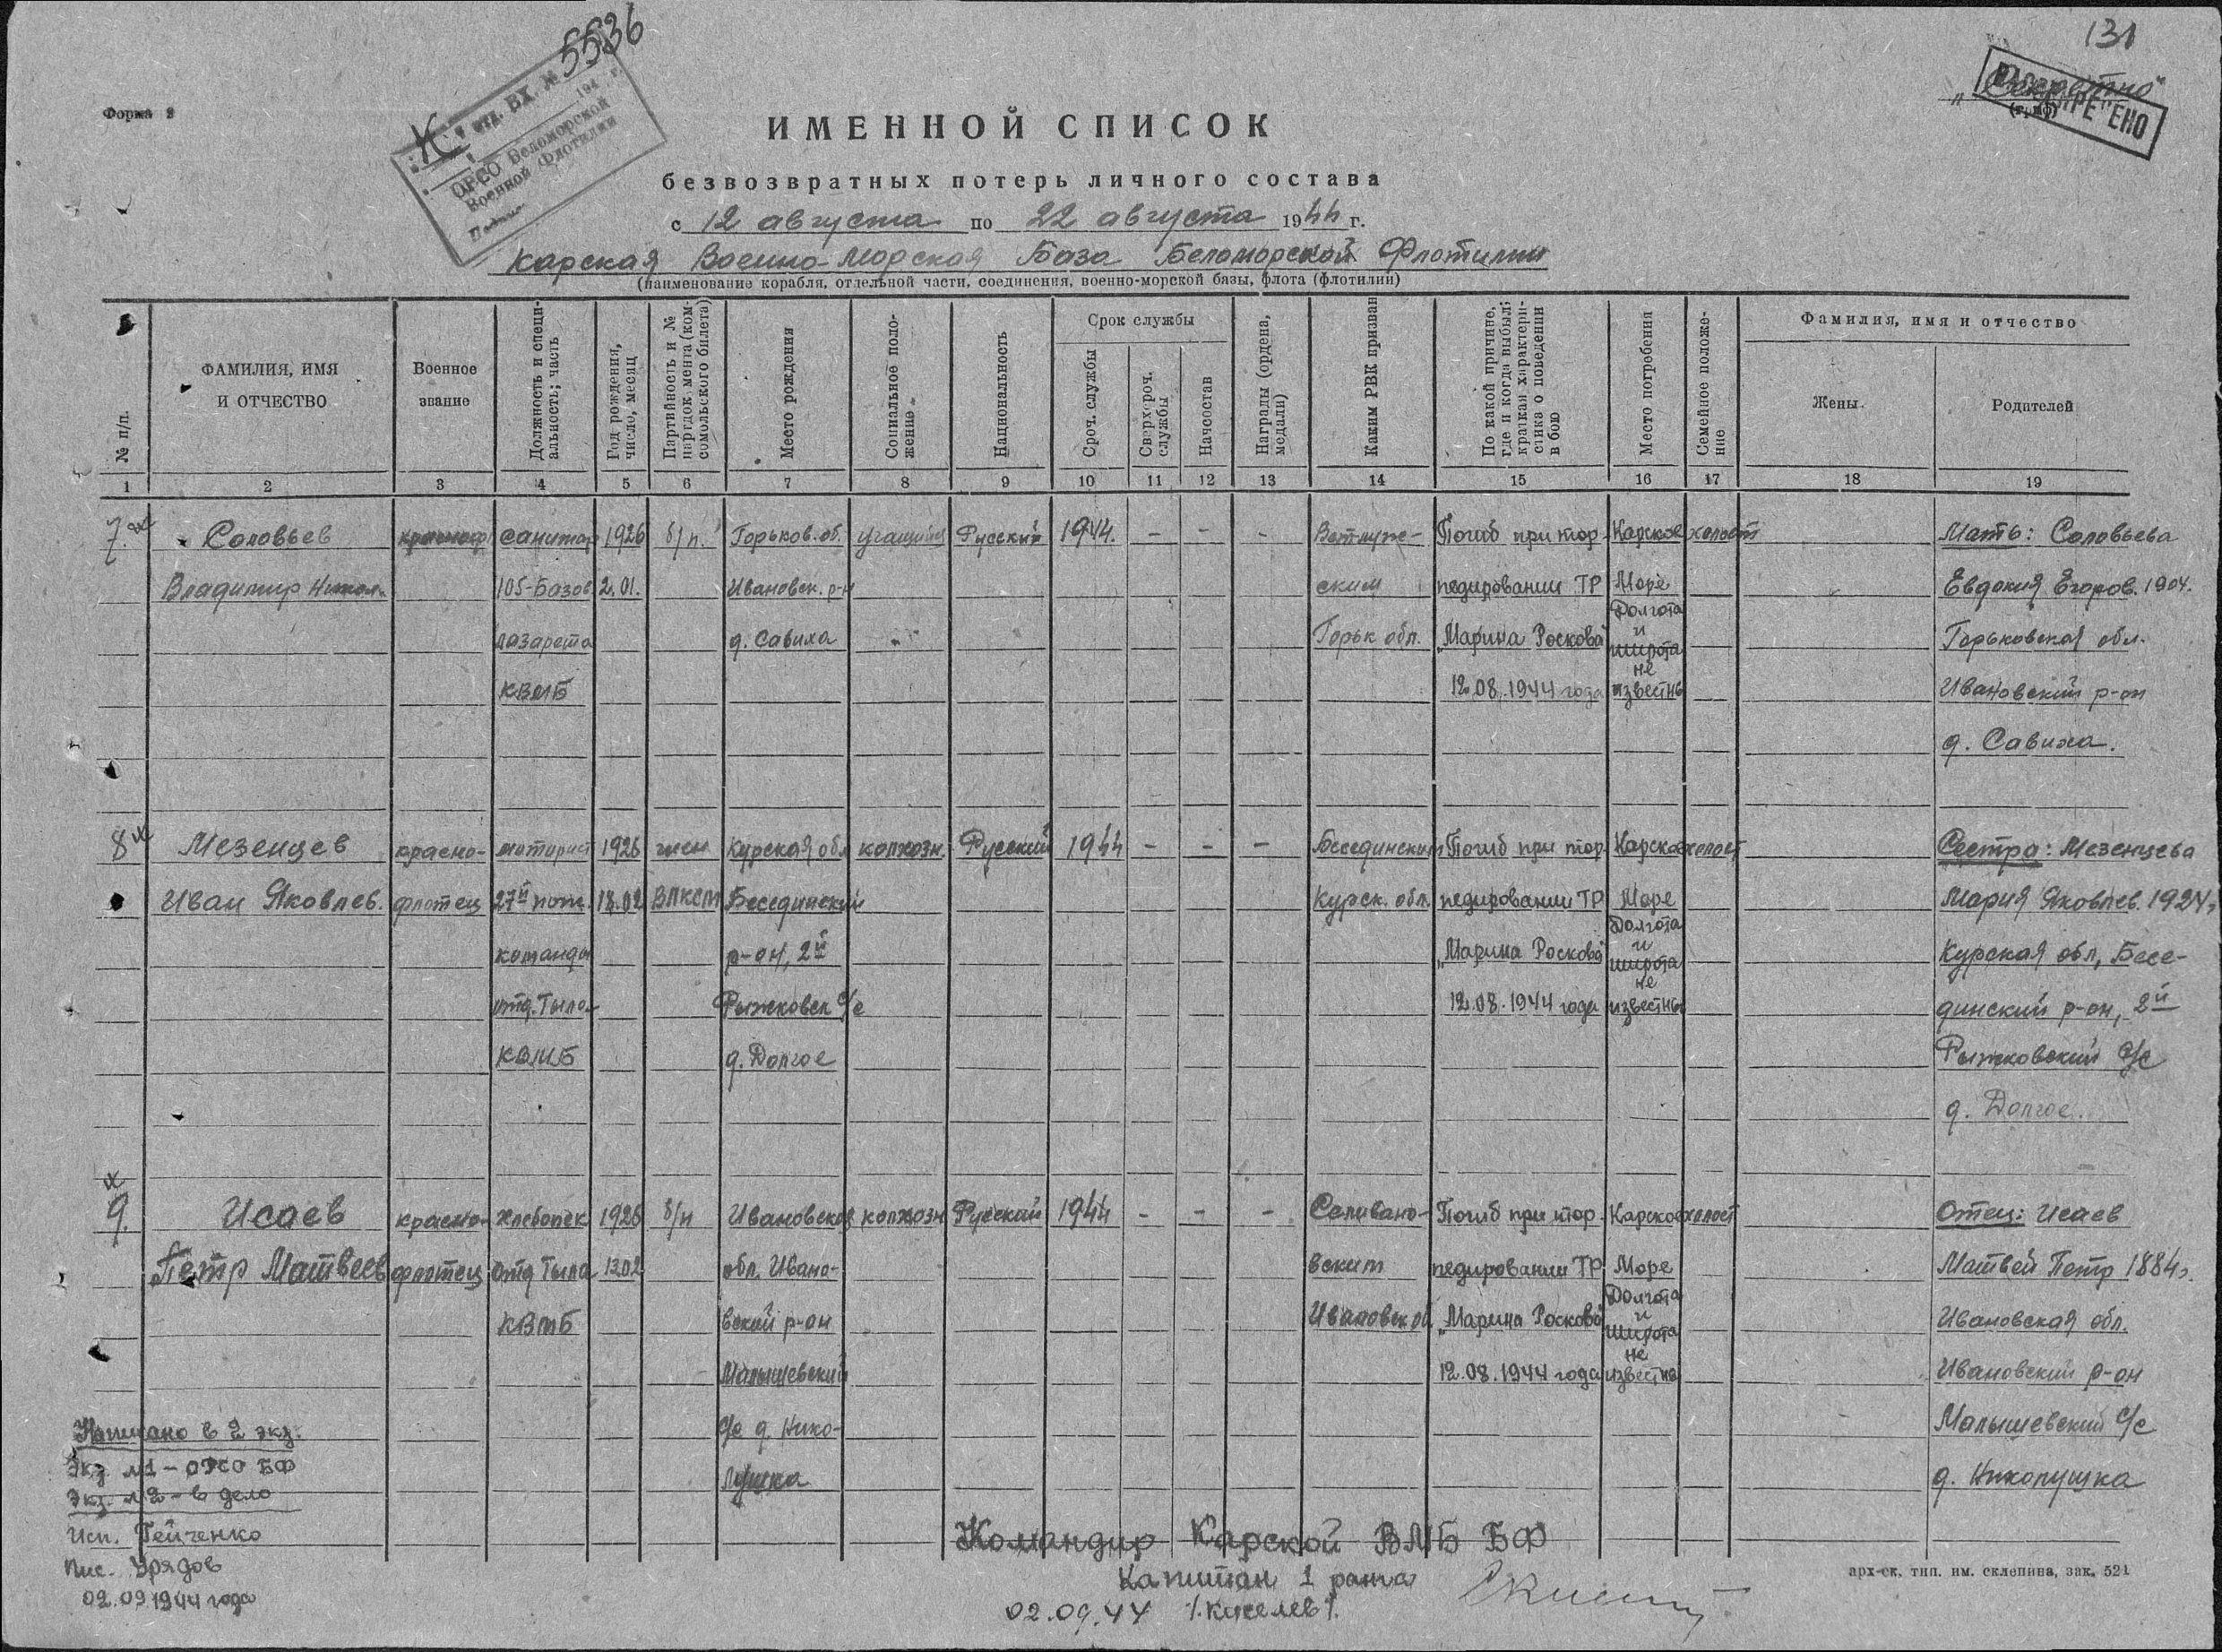 131
5536
отд. ВХ. №
194 г.
ОРСО Беломорской
Военной Флотилии
„Секретно"
Форма 9
ИМЕННОЙ СПИСОК
безвозвратных потерь личного состава
с 12 августа по 22 августа 1944 г.
Карская Военно-Морская База Беломорской Флотилии
(наименование корабля, отдельной части, соединения, военно-морской базы, флота (флотилии)
№ п/п.
ФАМИЛИЯ, ИМЯ
И ОТЧЕСТВО
Военное
звание
Должность и специ-
альность; часть
Год рождения,
число, месяц
Партийность и №
партдокумента (ком-
сомольского билета)
Место рождения
Социальное поло-
жение
Национальность
Срок службы
Сроч. службы
Сверхсроч.
службы
Начсостав
Награды (ордена,
медали)
Каким РВК призван
По какой причине,
где и когда выбыл;
краткая характери-
стика о поведении
в бою
Место погребения
Семейное положе-
ние
Фамилия, имя и отчество
Жены
Родителей
1 2 3 4 5 6 7 8 9 10 11 12 13 14 15 16 17 18 19
7. Соловьев санитар 1926 б/п. Горьков. об. учащийся Русский 1944. - - - Ветлуж- Погиб при тор- Карское холост Мать: Соловьева
Владимир Никол. 105-Базов. 2.01. Ивановск. р-н ским педировании ТР Море Евдокия Егоров. 1904.
Долгота
лазарета д. Савиха Горьк обл. „Марина Роскова" и Горьковская обл.
широта
не
КВМБ 12.08.1944 года известны Ивановский р-он
д. Савиха.
8 Мезенцев красно- моторист 1926 член Курская обл колхозн. Русский 1944 - - - Беседински Погиб при тор- Карское холост Сестра: Мезенцева
Иван Яковлев. флотец 27й пож. 18.02 ВЛКСМ Беседински Курск. обл. педировании ТР Море Мария Яковлев. 1924г
Долгота
команды р-он, 2й „Марина Роскова" и Курская обл, Бесе-
широта
не
отд. Тыла Рыжковск с/с 12.08.1944 года известны динский р-он, 2й
КВМБ д. Долгое Рыжковский с/с
д. Долгое.
9. Исаев красно- хлебопек 1926 б/п Ивановская колхозн Русский 1944 - - - Селивано- Погиб при тор- Карское холост Отец: Исаев
Петр Матвеев флотец отд Тыла 13.02 обл. Ивано- вским педировании ТР Море Матвей Петр 1884г.
Долгота
КВМБ вский р-он Ивановск об. „Марина Роскова" и Ивановская обл.
широта
не
Малышевский 12.08.1944 года известна Ивановский р-он
с/с д. Нико- Малышевский с/с
лушка д. Николушка
Написано в 2 экз.
Экз №1 - ОРСО БФ
Экз. №2 - в дело
Исп. Гейченко
Пис. Урядов
02.09.1944 года
Командир Карской ВМБ БФ
Капитан 1 ранга
02.09.44 /.Киселев/.
арх-ск. тип. им. склепина, зак. 521